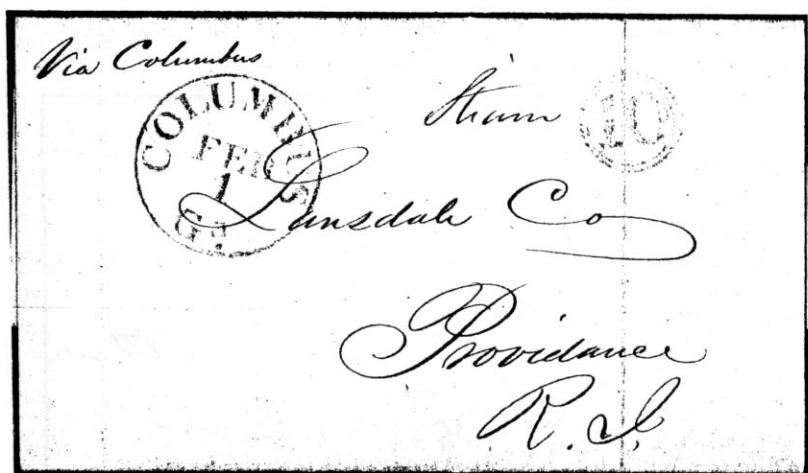 Via Columbus
COLUMBUS
FEB
1
Ga.
Steam 10
Lonsdale Co
Providance
R. I.